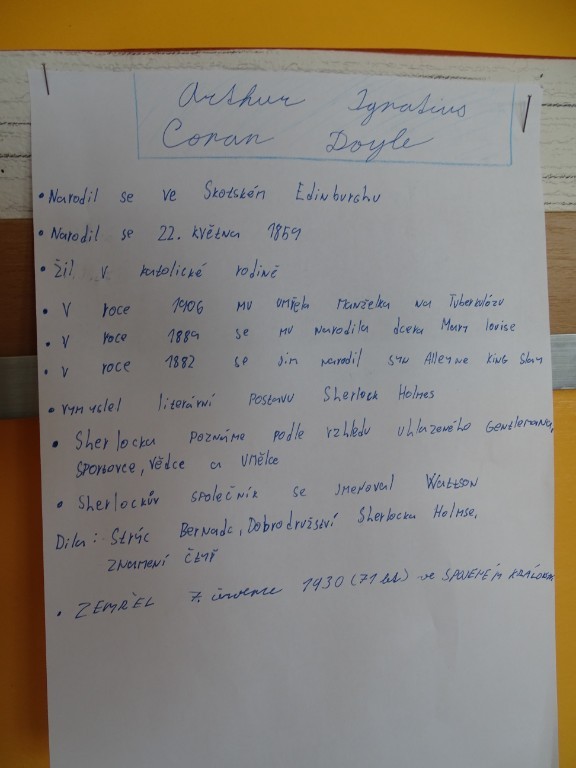 Arthur Ignatius
Conan Doyle
• Narodil se ve Skotském Edinburghu
• Narodil se 22. května 1859
• Žil v katolické rodině
• V roce 1906 mu umřela manželka na Tuberkulózu
• V roce 1889 se mu narodila dcera Mary louise
• V roce 1882 se jim narodil syn Alleyne King
• vymyslel literární postavu Sherlock Holmes
• Sherlocka poznáme podle vzhledu uhlazeného Gentlemana,
sportovce, vědce a umělce
• Sherlockův společník se jmenoval Wattson
Díla: Strýc Bernadc, Dobrodružství Sherlocka Holmse,
znamení čtyř
• ZEMŘEL 7. července 1930 (71 let) ve SPOJENÉM